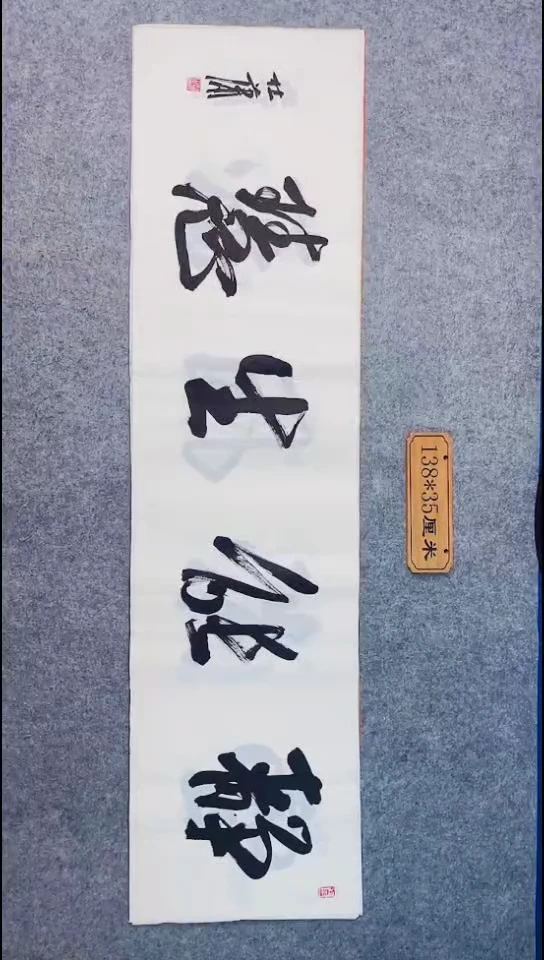 静能生慧
138*35厘米